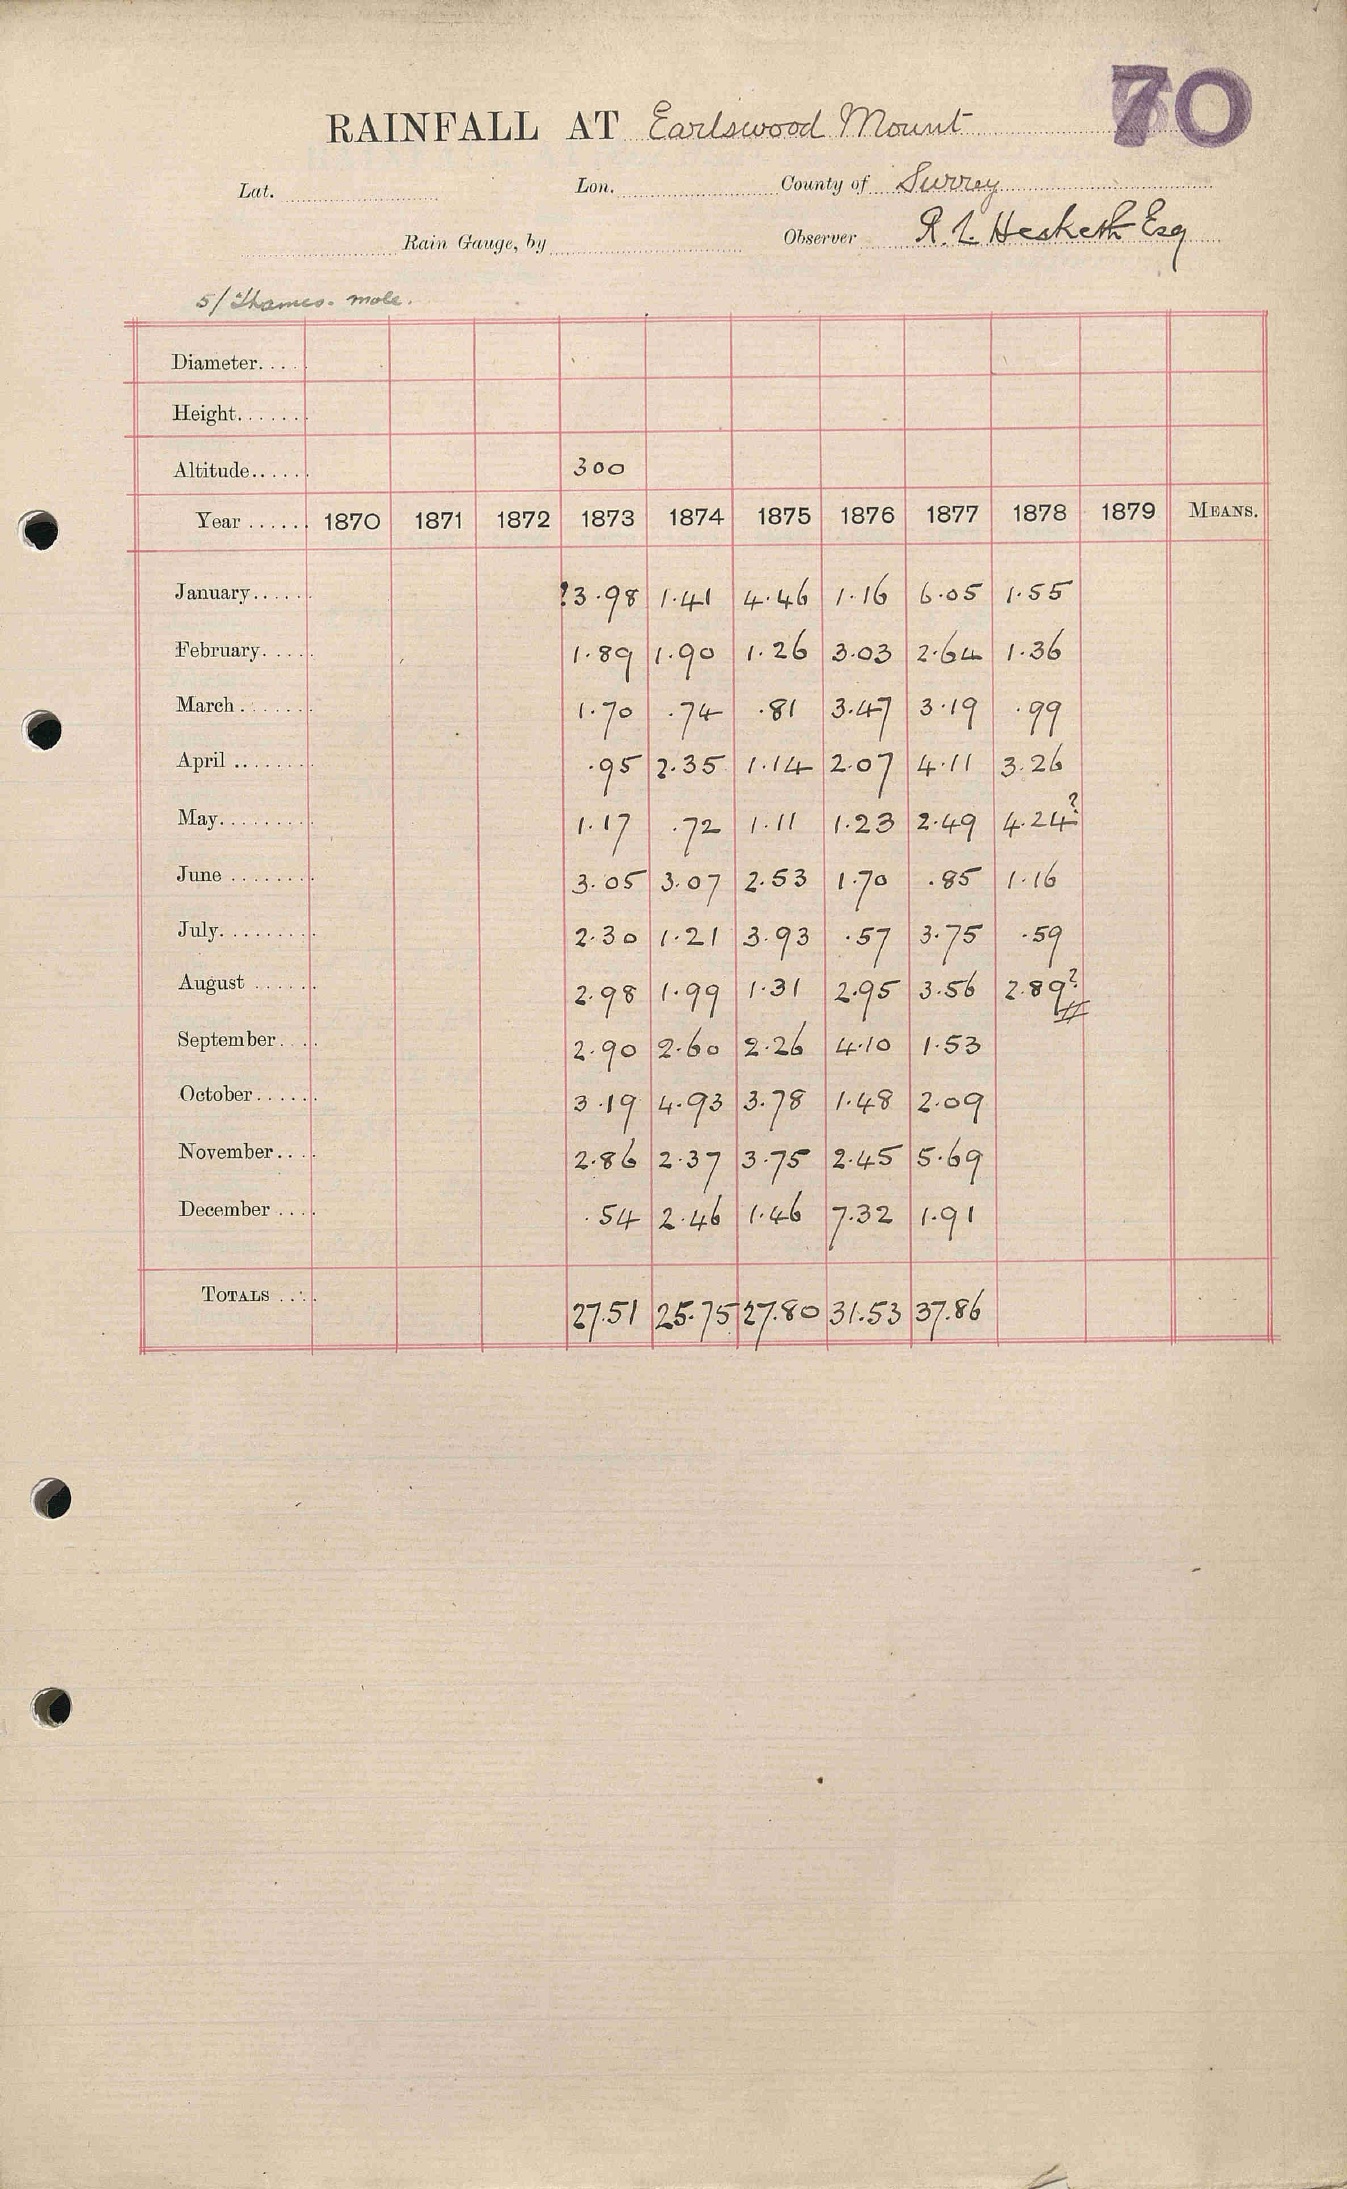 70
RAINFALL AT Earlswood Mount
Lat. Lon. County of Surrey
Rain Gauge, by Observer R. L. Hesketh Esq
5/ Thames. Mole.
Diameter....
Height.......
Altitude...... 300
Year ...... 1870 1871 1872 1873 1874 1875 1876 1877 1878 1879 MEANS.
January...... ?3.98 1.41 4.46 1.16 6.05 1.55
February..... 1.89 1.90 1.26 3.03 2.64 1.36
March....... 1.70 .74 .81 3.47 3.19 .99
April ........ .95 2.35 1.14 2.07 4.11 3.26
May......... 1.17 .72 1.11 1.23 2.49 4.24?
June ........ 3.05 3.07 2.53 1.70 .85 1.16
July......... 2.30 1.21 3.93 .57 3.75 .59
August ...... 2.98 1.99 1.31 2.95 3.56 2.89?
September.... 2.90 2.60 2.26 4.10 1.53
October...... 3.19 4.93 3.78 1.48 2.09
November.... 2.86 2.37 3.75 2.45 5.69
December .... .54 2.46 1.46 7.32 1.91
TOTALS .... 27.51 25.75 27.80 31.53 37.86